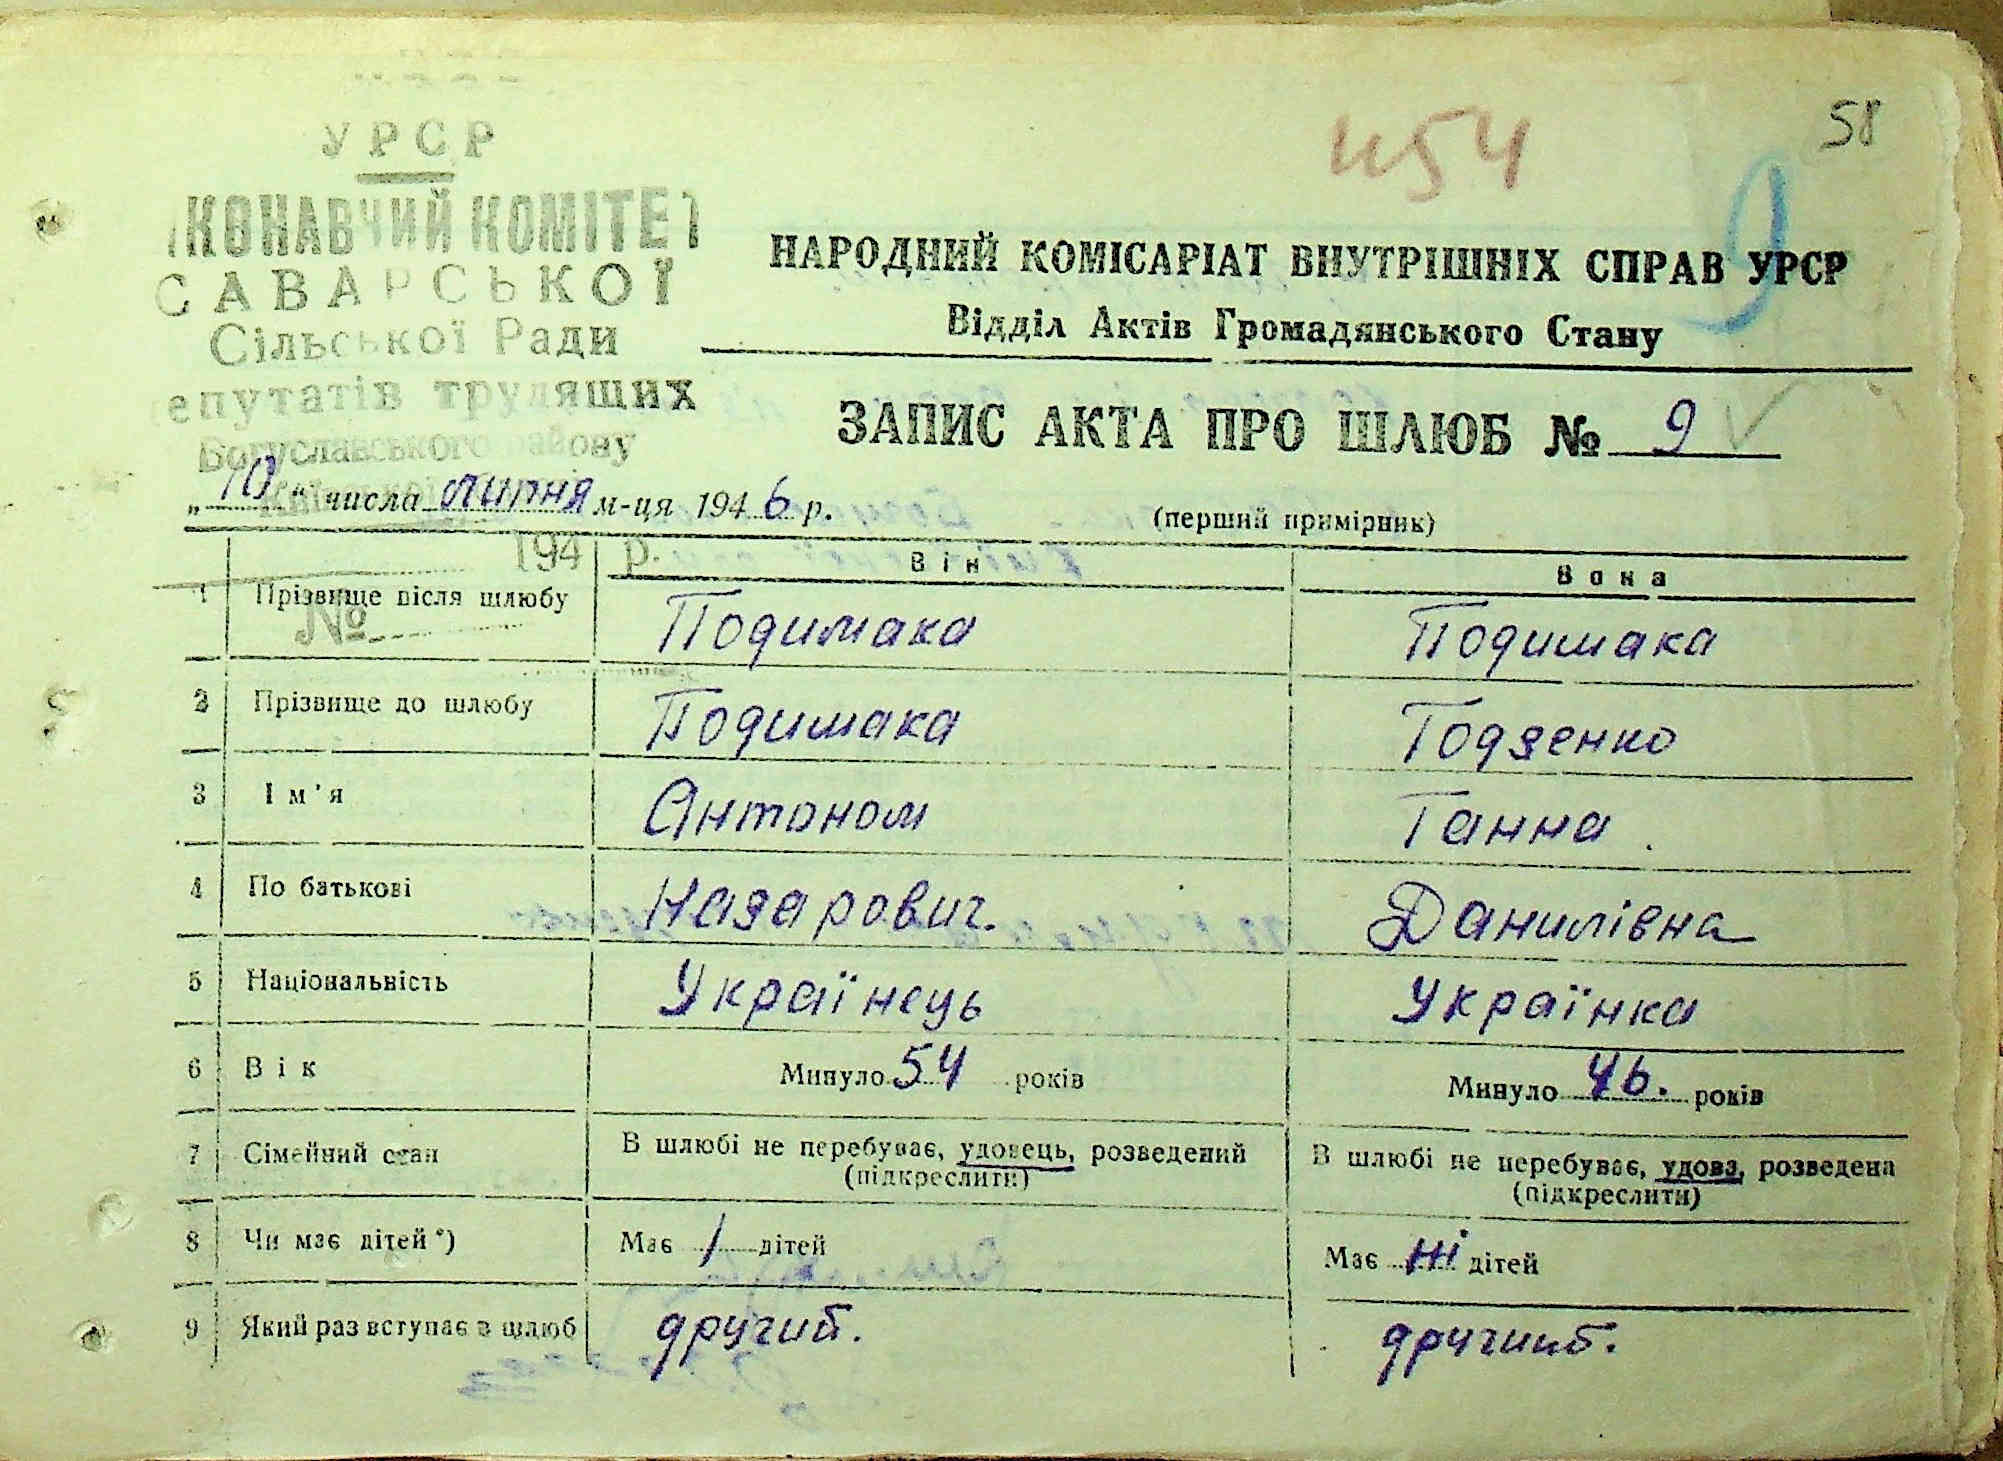 58
454
УРСР
КОНАВЧИЙ КОМІТЕТ
САВАРСЬКОЇ
Сільської Ради
епутатів трудящих
Богуславського району
НАРОДНИЙ КОМІСАРІАТ ВНУТРІШНІХ СПРАВ УРСР
9
Відділ Актів Громадянського Стану
ЗАПИС АКТА ПРО ШЛЮБ № 9
„10" числа липня м-ця 1946 р.
(перший примірник)
194 р.
№
Він Вона
1 Прізвище після шлюбу Подимака Подимака
2 Прізвище до шлюбу Подимака Годзенко
3 Ім'я Антоном Ганна
4 По батькові Назарович. Данилівна
5 Національність Українець Українка
6 Вік Минуло 54 років Минуло 46. років
7 Сімейний стан В шлюбі не перебуває, удовець, розведений (підкреслити) В шлюбі не перебуває, удова, розведена (підкреслити)
8 Чи має дітей*) Має 1 дітей Має ні дітей
9 Який раз вступає в шлюб другий. другий.